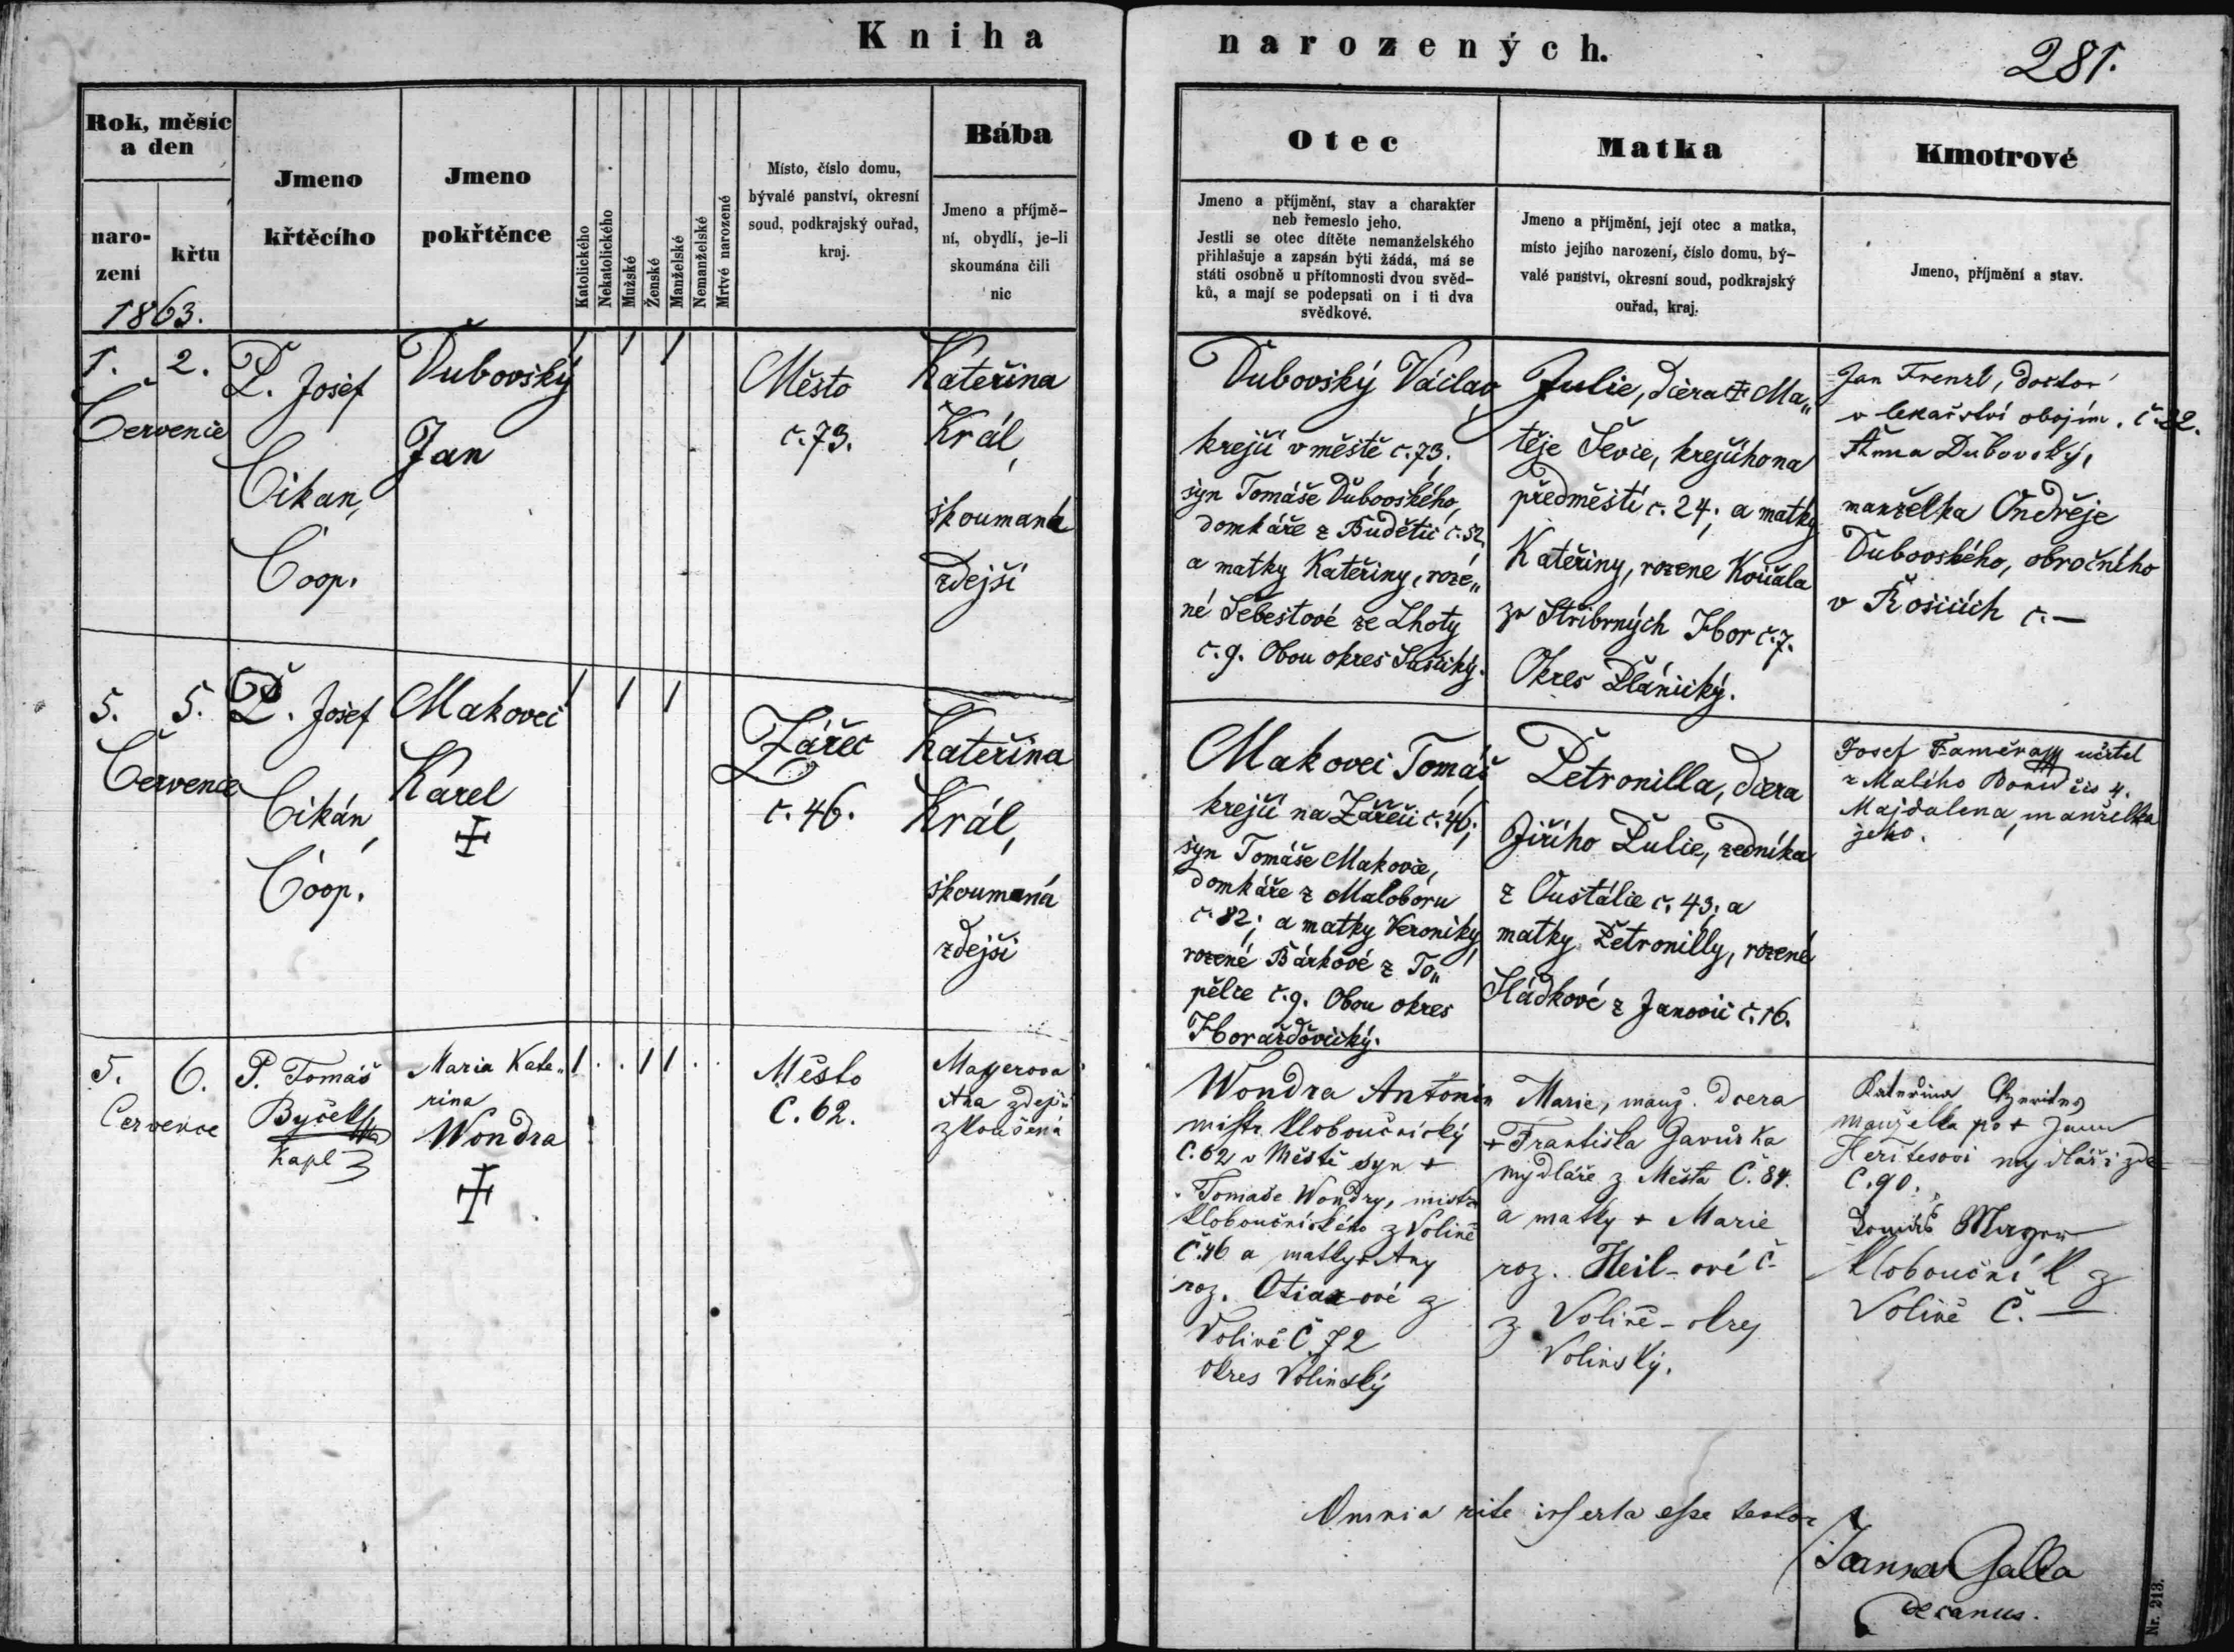 Kniha narozených.
281.
Rok, měsíc
a den
naro-
zení
křtu
1863.
Jmeno
křtěcího
Jmeno
pokřtěnce
Katolického
Nekatolického
Mužské
Ženské
Manželské
Nemanželské
Mrtvě narozené
Místo, číslo domu,
bývalé panství, okresní
soud, podkrajský ouřad,
kraj.
Bába
Jmeno a příjmě-
ní, obydlí, je-li
skoumána čili
nic
Otec
Jmeno a příjmění, stav a charakter
neb řemeslo jeho.
Jestli se otec dítěte nemanželského
přihlašuje a zapsán býti žádá, má se
státi osobně u přítomnosti dvou svěd-
ků, a mají se podepsati on i ti dva
svědkové.
Matka
Jmeno a příjmění, její otec a matka,
místo jejího narození, číslo domu, bý-
valé panství, okresní soud, podkrajský
ouřad, kraj.
Kmotrové
Jmeno, příjmění a stav.
1. 2.
Července
P. Josef
Cikan,
Coop.
Dubovský
Jan
1 1 1
Město
č. 73.
Kateřina
Král,
skoumaná
zdejší
Dubovský Václav,
krejčí v městě č. 73.
syn Tomáše Dubovského,
domkáře z Budětic č. 52,
a matky Kateřiny, roze„
né Šebestové ze Lhoty
č. 9. Obou okres Sušický.
Julie, dcera † Ma„
těje Ševce, krejčího na
předměstí č. 24; a matky
Kateřiny, rozene Koučala
ze Stříbrných Hor č. 7.
Okres Plánický.
Jan Frenzl, doctor
v lekařství obojím. č. 22.
Anna Dubovský,
manželka Ondřeje
Dubovského, obročního
v Rosicích č. —
5. 5.
Července
P. Josef
Cikán,
Coop.
Makovec
Karel
†
1 1 1
Zářec
č. 46.
Kateřina
Král,
skoumaná
zdejší
Makovec Tomáš,
krejčí na Zářečí č. 46;
syn Tomáše Makovce,
domkáře z Maloboru
č. 82; a matky Veroniky,
rozené Bárkové z To„
pělce č. 9. Obou okres
Horažďovický.
Petronilla, dcera
Jiřího Pulce, zedníka
z Oustálce č. 43; a
matky Petronilly, rozené
Sládkové z Janovic č. 16.
Josef Faměra učitel
z Malého Boru čís 4.
Majdalena, manželka
jeho.
5. 6.
Července
P. Tomáš
Byček
Kapl
Maria Kate„
rina
Wondra
†
1 . . 1 1 .
Město
C. 62.
Mayerova
Ana zdejší
zkoušená
Wondra Antonín
mistr kloboučnický
C. 62 v Městě syn +
Tomaše Wondry, mistra
kloboučnického z Volině
Č. 46 a matky + Any
roz. z
Volině Č. 72
okres Volinský
Marie, manž. dcera
+ Františka Gavůrka
mydláře z Města Č. 84.
a matky + Marie
roz. Heil-ové č-
z Volině - okres
Volinský.
Kateřina
manželka po + Janu
Heritesovi mydláři zde
C. 90.
Tomáš Mayer
kloboučník z
Volině Č. —
Omnia rite inserta esse testor
Joannes Galla
decanus.
Nr. 213.